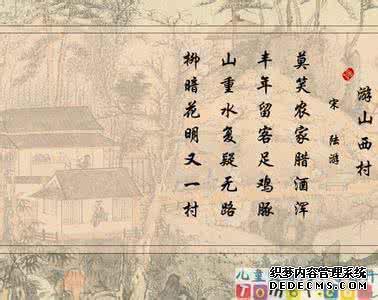 游山西村
宋 陆游
莫笑农家腊酒浑
丰年留客足鸡豚
山重水复疑无路
柳暗花明又一村
儿童
织梦内容管理系统
DEDECMS.COM